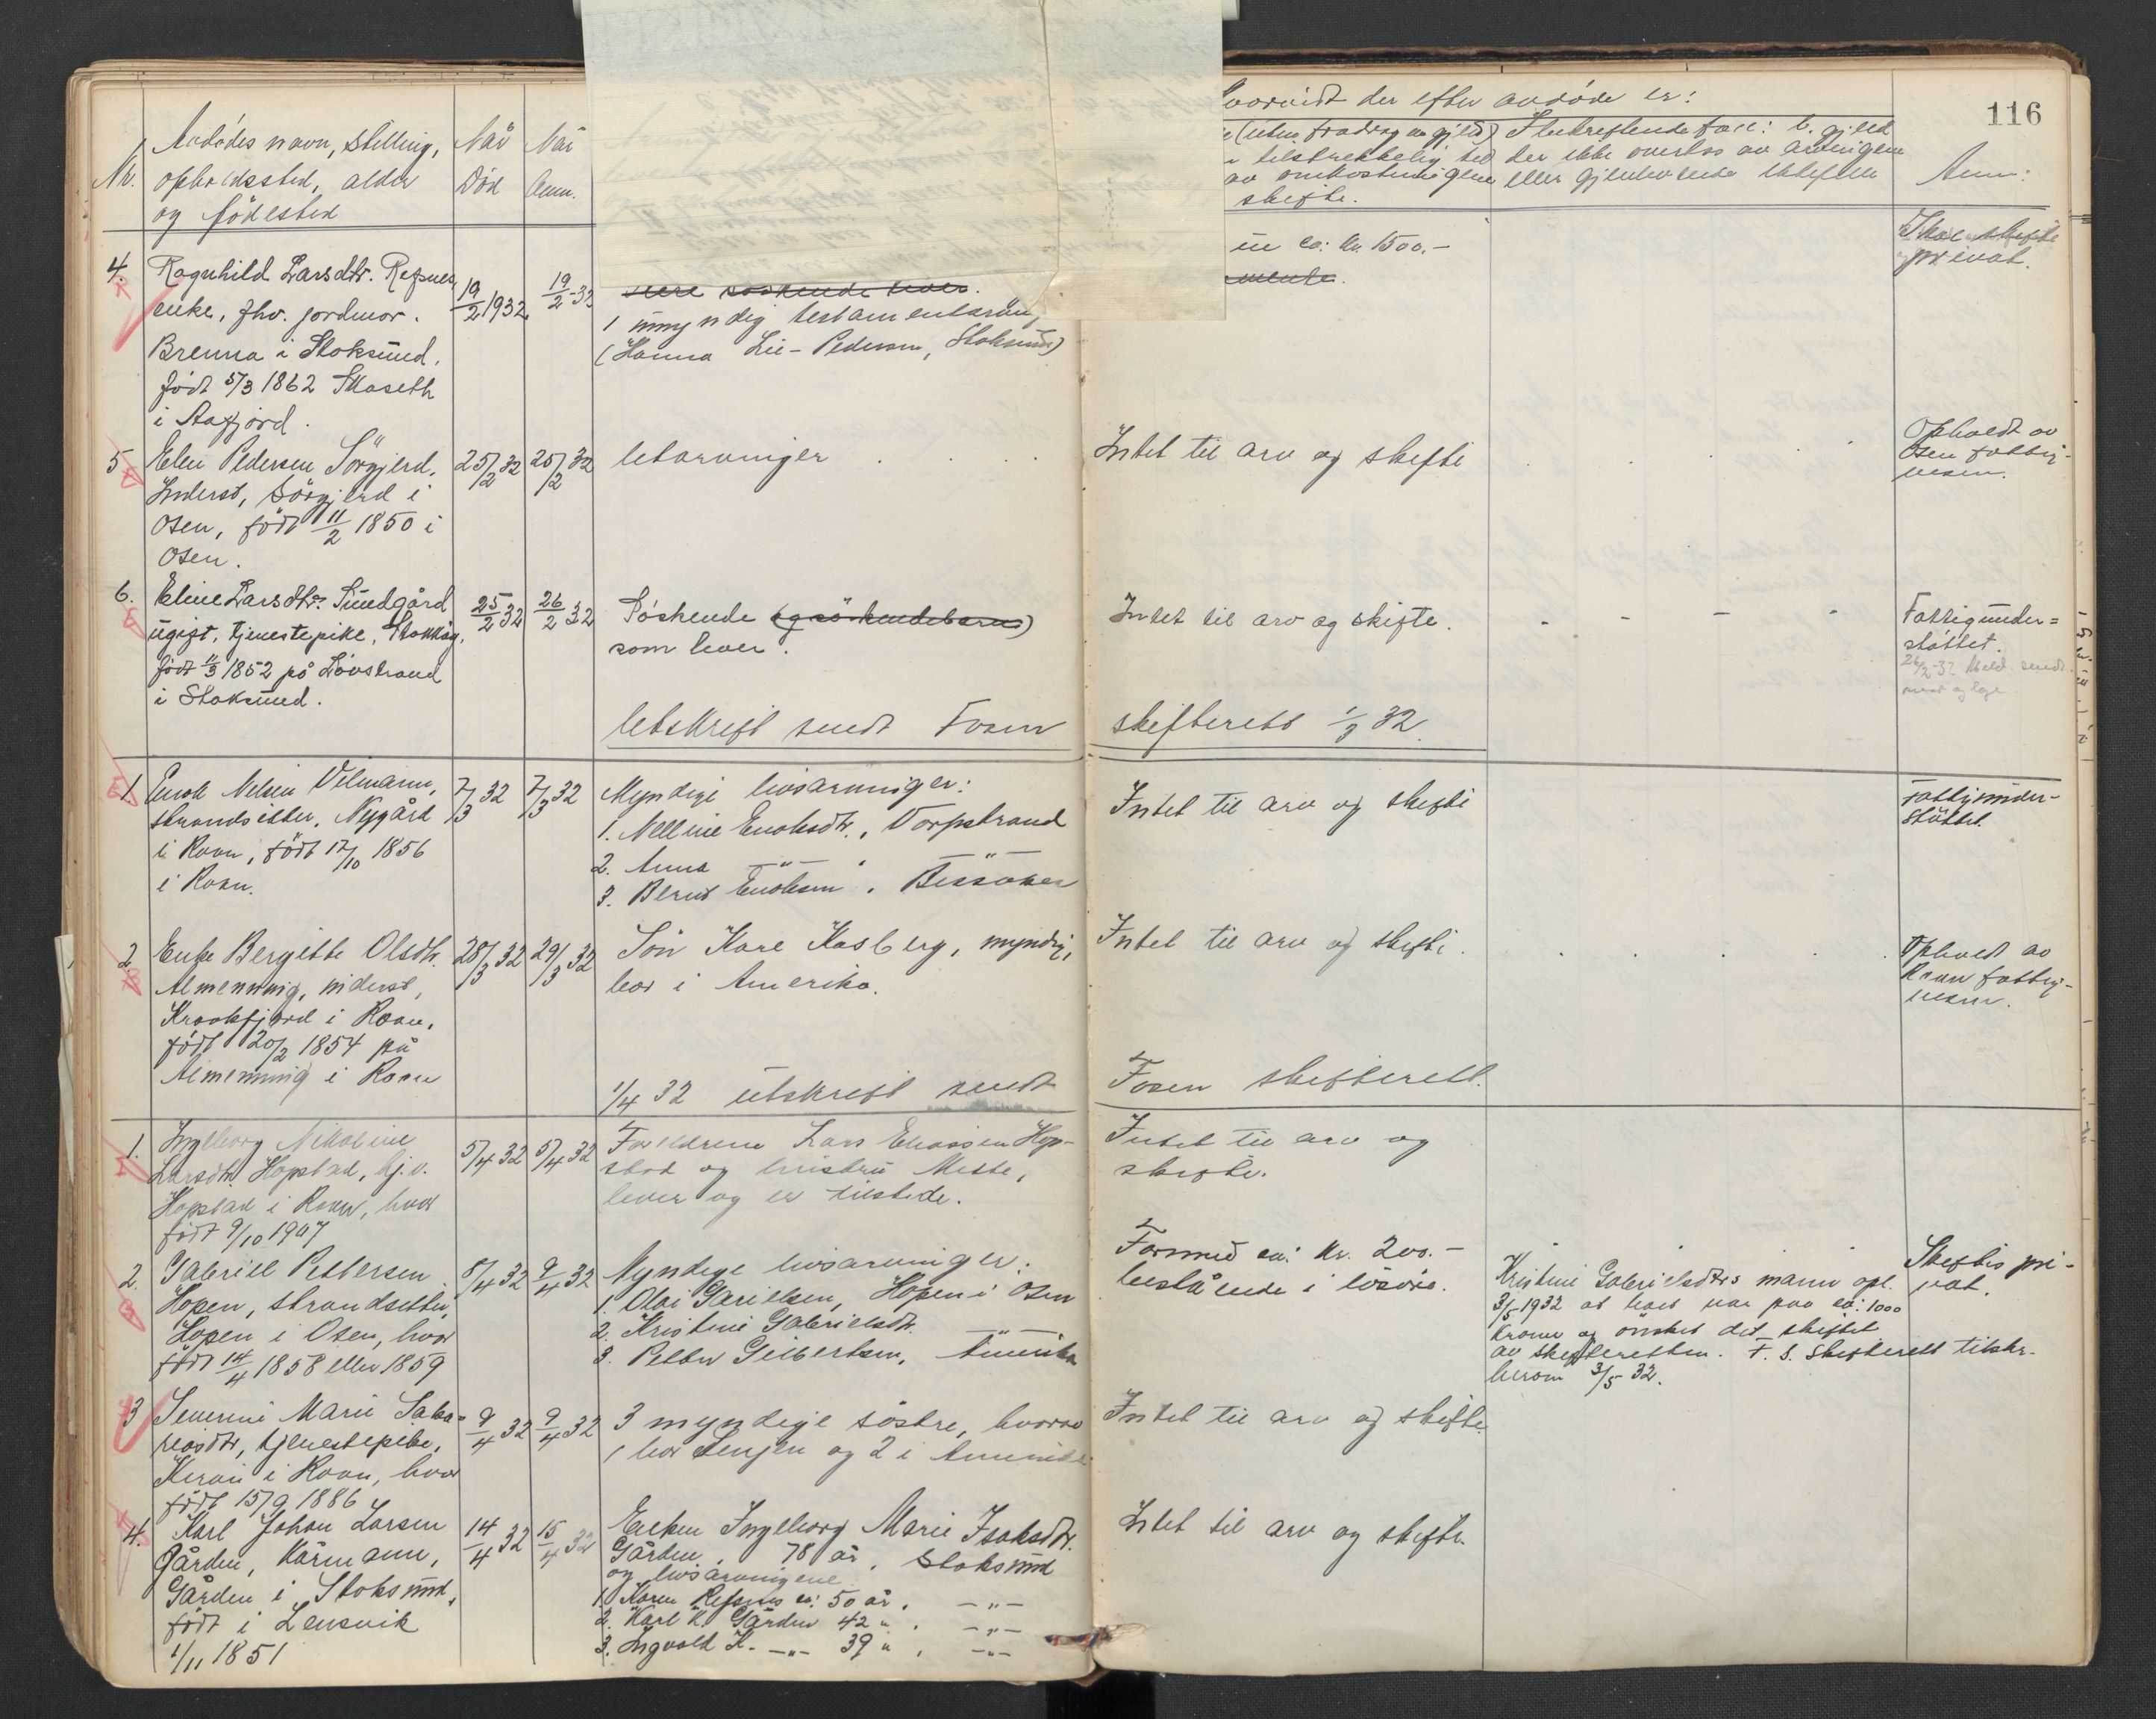 116
Nr.
Avdødes navn, stilling,
opholdssted, alder
og fødested
Når
Død
Når
Anm.
hvorvidt der efter avdøde er:
(uten fradrag av gjeld)
tilstrekkelig til
av omkostningene
skifte.
I tilfelle: b. gjeld
der ikke overtas av arvingene
eller gjenlevende ektefelle
Anm:
4.
Ragnhild Larsdtr. Refsnes,
enke, fhv. jordmor.
Brenna i Stoksund.
født 5/3 1862 Skaseth
i Aafjord.
19/2 1932.
19/2-32
flere søskende lever.
1 umyndig testamentsarving
(Hanna Lie-Pedersen, Stoksund)
ca: kr. 1500.-
Skal skifte
privat.
5
Elen Pedersen Sørgjerd,
Inderst, Sørgjerd i
Osen, født 11/2 1850 i
Osen.
25/2 32
25/2 32
Utarvinger
Intet til arv og skifte
Opholdt av
Osen fattig-
vesen.
6.
Eline Larsdtr. Sundgård
ugift, tjenestepike, Stokkøy,
født 11/3 1852 på Løvstrand
i Stoksund.
25/2 32
26/2 32
Søskende (og søskendebarn)
som lever.
Intet til arv og skifte.
Fattigunder=
støttet.
26/2-32 Meld. sendt
Utskrift sendt Fosen
skifterett 1/3 32.
1.
Enok Nelsen Vilmann,
strandsitter, Nygård
i Roan, født 17/10 1856
i Roan.
7/3 32
7/3 32
Myndige livsarvinger:
1. Nelline Enoksdtr., Vorpstrand
2. Anna —"— , —"—
3. Bernt Enoksen, Bessaker
Intet til arv og skifte
Fattigunder-
støttet.
2.
Enke Bergitte Olsdtr.
Almenning, inderst,
Kraakfjord i Roan,
født 20/2 1854 på
Almenning i Roan
28/3 32
29/3 32
Søn Kare Kasberg, myndig,
bor i Amerika.
Intet til arv og skifte.
Opholdt av
Roan fattig-
vesen.
1/4 32 utskrift sendt
Fosen skifterett.
1.
Ingeborg Nikoline
Larsdtr. Hopstad, hj.v.
Hopstad i Roan, hvor
født 9/10 1907
5/4 32
5/4 32
Foreldrene Lars Eliassen Hop-
stad og hustru Mette,
lever og er tilstede.
Intet til arv og
skifte.
2.
Gabriel Pettersen
Hopen, strandsitter,
Hopen i Osen, hvor
født 14/4 1858 eller 1859
8/4 32
9/4 32
Myndige livsarvinger:
1. Olai Garielsen, Hopen i Osen
2. Kristine Gabrielsdtr. —"—
3. Petter Geibertsen, Amerika
Formue ca: kr. 200.-
bestående i løsøre.
Kristine Gabrielsdtrs mann opl.
3/5-1932 at boet var paa ca: 1000
kroner og ønsket det skiftet
av skifteretten. F. S. Skifterett tilskr.
herom 3/5 32.
Skiftes pri-
vat.
3
Severine Marie Saka-
riasdtr, tjenestepike,
Kiran i Roan, hvor
født 15/9 1886
9/4 32
9/4 32
3 myndige søstre, hvorav
1 bor Senjen og 2 i Amerika
Intet til arv og skifte.
4.
Karl Johan Larsen
Gården, kårmann,
Gården i Stoksund,
født i Lensvik
1/11 1851
14/4 32
15/4 32
Enken Ingeborg Marie Isaksdtr.
Gården, 78 år, Stoksund
og livsarvingene
1. Karen Refsnes ca: 50 år. —"—
2. Karl K. Gården 42 " . —"—
3. Ingvald K. —"— 39 " , —"—
Intet til arv og skifte.